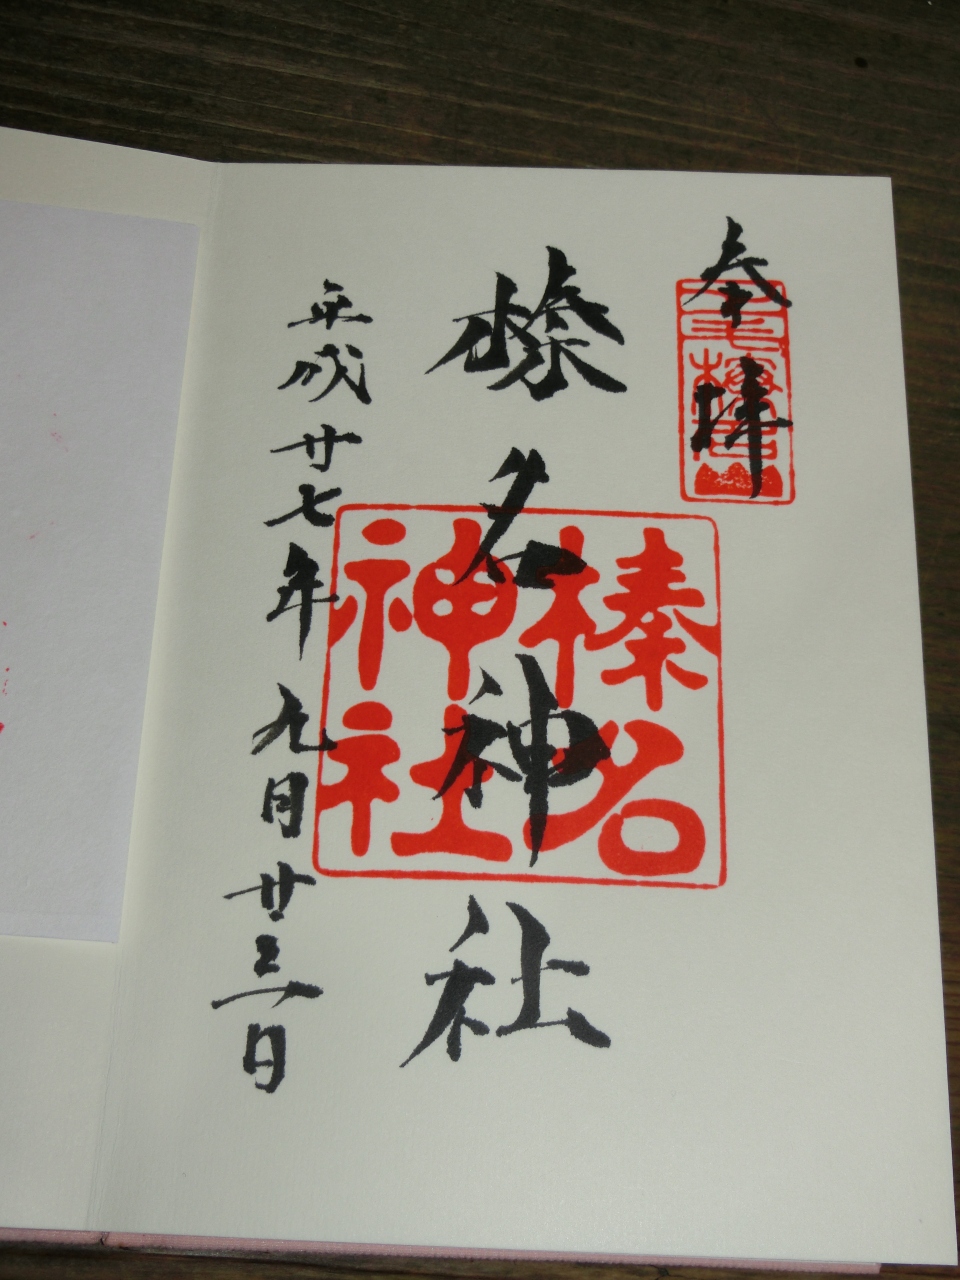 奉拝
上毛榛名山
榛名神社
榛名神社
平成廿七年九月廿三日